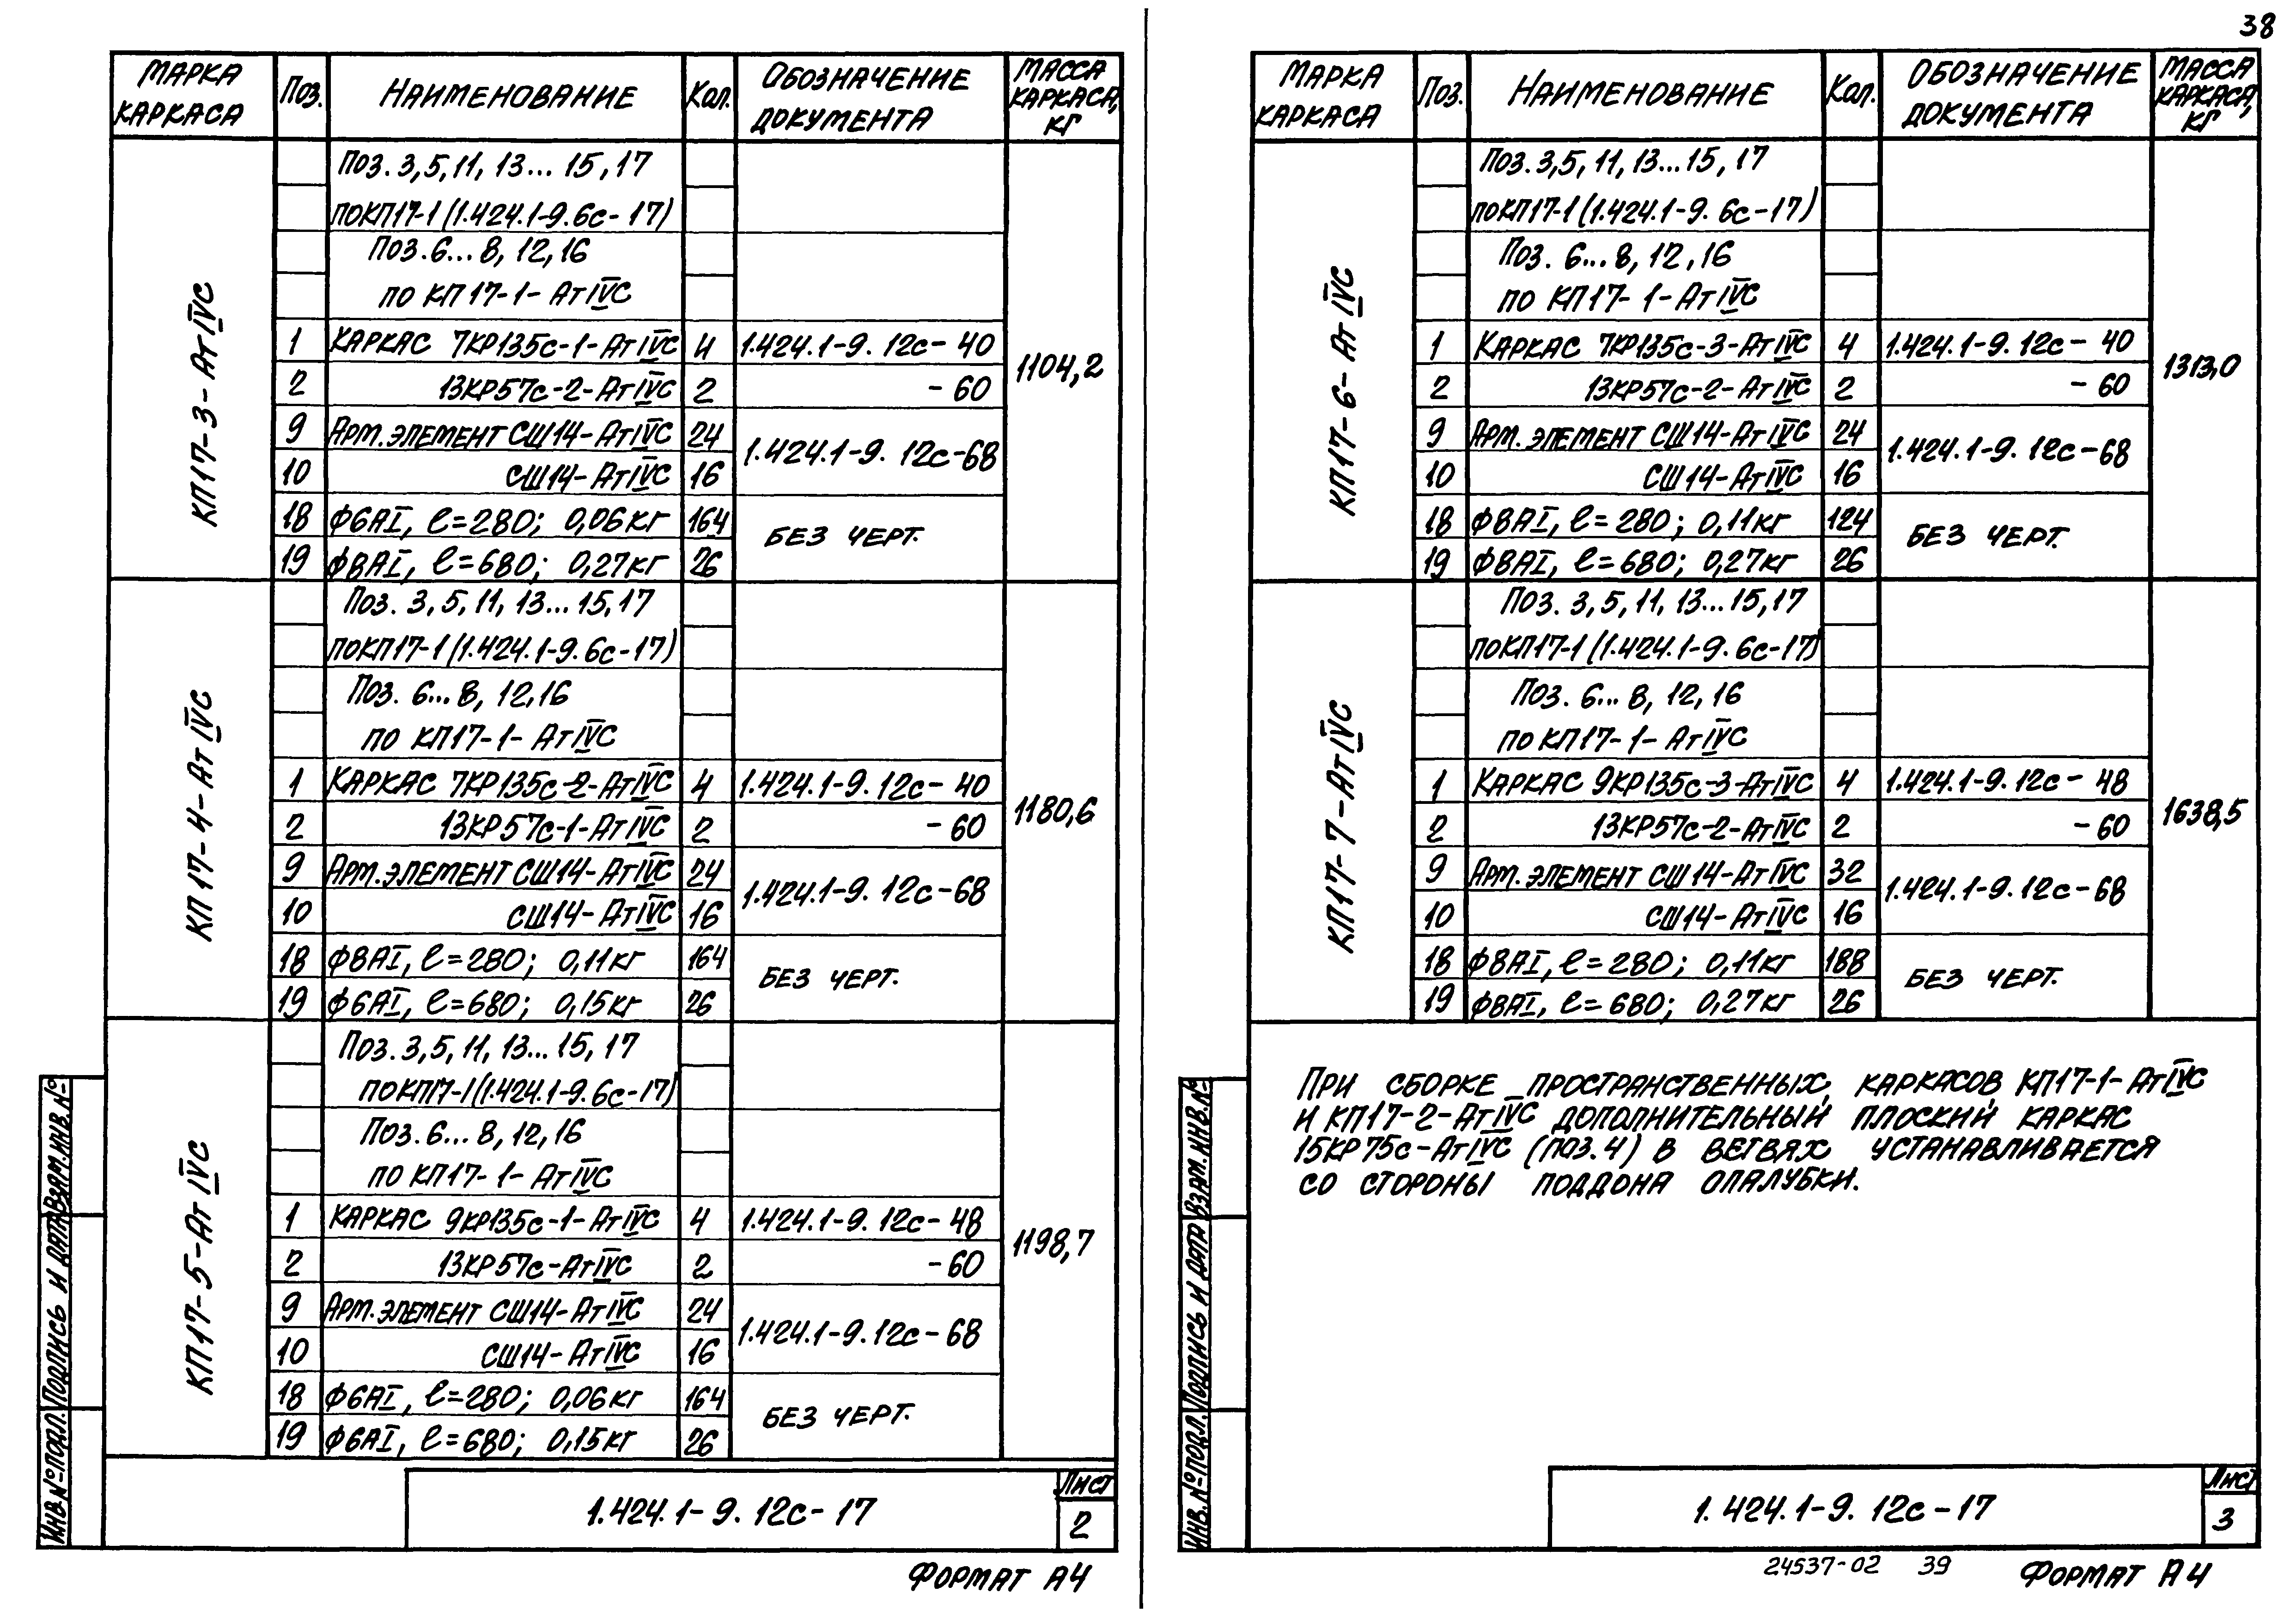 38
МАРКА КАРКАСА | Поз. | НАИМЕНОВАНИЕ | Кол. | ОБОЗНАЧЕНИЕ ДОКУМЕНТА | МАССА КАРКАСА, КГ
КП17-3-АтIVС
Поз. 3,5,11,13...15,17
по КП17-1 (1.424.1-9.6с-17)
Поз. 6...8, 12, 16
по КП17-1-АтIVС
1 | КАРКАС 7КР135с-1-АтIVС | 4 | 1.424.1-9.12с-40
2 | 13КР57с-2-АтIVС | 2 | -60
1104,2
9 | АРМ. ЭЛЕМЕНТ СШ14-АтIVС | 24 | 1.424.1-9.12с-68
10 | СШ14-АтIVС | 16
18 | Ф6АI, ℓ=280; 0,06кг | 164 | БЕЗ ЧЕРТ.
19 | Ф8АI, ℓ=680; 0,27кг | 26
КП17-4-АтIVС
Поз. 3,5,11,13...15,17
по КП17-1 (1.424.1-9.6с-17)
Поз. 6...8, 12,16
по КП17-1-АтIVС
1 | КАРКАС 7КР135с-2-АтIVС | 4 | 1.424.1-9.12с-40
2 | 13КР57с-1-АтIVС | 2 | -60
1180,6
9 | АРМ. ЭЛЕМЕНТ СШ14-АтIVС | 24 | 1.424.1-9.12с-68
10 | СШ14-АтIVС | 16
18 | Ф8АI, ℓ=280; 0,11кг | 164 | БЕЗ ЧЕРТ.
19 | Ф6АI, ℓ=680; 0,15кг | 26
КП17-5-АтIVС
Поз. 3,5,11,13...15,17
по КП17-1 (1.424.1-9.6с-17)
Поз. 6...8, 12, 16
по КП17-1-АтIVС
1 | КАРКАС 9КР135с-1-АтIVС | 4 | 1.424.1-9.12с-48
2 | 13КР57с-АтIVС | 2 | -60
1198,7
9 | АРМ. ЭЛЕМЕНТ СШ14-АтIVС | 24 | 1.424.1-9.12с-68
10 | СШ14-АтIVС | 16
18 | Ф6АI, ℓ=280; 0,06кг | 164 | БЕЗ ЧЕРТ.
19 | Ф6АI, ℓ=680; 0,15кг | 26
ИНВ.№ПОДЛ. | ПОДПИСЬ И ДАТА | ВЗАМ.ИНВ.№
1.424.1-9.12с-17
Лист
2
ФОРМАТ А4
МАРКА КАРКАСА | Поз. | НАИМЕНОВАНИЕ | Кол. | ОБОЗНАЧЕНИЕ ДОКУМЕНТА | МАССА КАРКАСА, КГ
КП17-6-АтIVС
Поз. 3,5,11,13...15,17
по КП17-1 (1.424.1-9.6с-17)
Поз. 6...8, 12, 16
по КП17-1-АтIVС
1 | КАРКАС 7КР135с-3-АтIVС | 4 | 1.424.1-9.12с-40
2 | 13КР57с-2-АтIVС | 2 | -60
1313,0
9 | АРМ. ЭЛЕМЕНТ СШ14-АтIVС | 24 | 1.424.1-9.12с-68
10 | СШ14-АтIVС | 16
18 | Ф8АI, ℓ=280; 0,11кг | 124 | БЕЗ ЧЕРТ.
19 | Ф8АI, ℓ=680; 0,27кг | 26
КП17-7-АтIVС
Поз. 3,5,11,13...15,17
по КП17-1 (1.424.1-9.6с-17)
Поз. 6...8, 12, 16
по КП17-1-АтIVС
1 | КАРКАС 9КР135с-3-АтIVС | 4 | 1.424.1-9.12с-48
2 | 13КР57с-2-АтIVС | 2 | -60
1638,5
9 | АРМ. ЭЛЕМЕНТ СШ14-АтIVС | 32 | 1.424.1-9.12с-68
10 | СШ14-АтIVС | 16
18 | Ф8АI, ℓ=280; 0,11кг | 188 | БЕЗ ЧЕРТ.
19 | Ф8АI, ℓ=680; 0,27кг | 26
ПРИ СБОРКЕ ПРОСТРАНСТВЕННЫХ КАРКАСОВ КП17-1-АтIVС
И КП17-2-АтIVС ДОПОЛНИТЕЛЬНЫЙ ПЛОСКИЙ КАРКАС
15КР75с-АтIVС (ПОЗ.4) В ВЕТВЯХ УСТАНАВЛИВАЕТСЯ
СО СТОРОНЫ ПОДДОНА ОПАЛУБКИ.
ИНВ.№ПОДЛ. | ПОДПИСЬ И ДАТА | ВЗАМ.ИНВ.№
1.424.1-9.12с-17
Лист
3
24537-02 39
ФОРМАТ А4